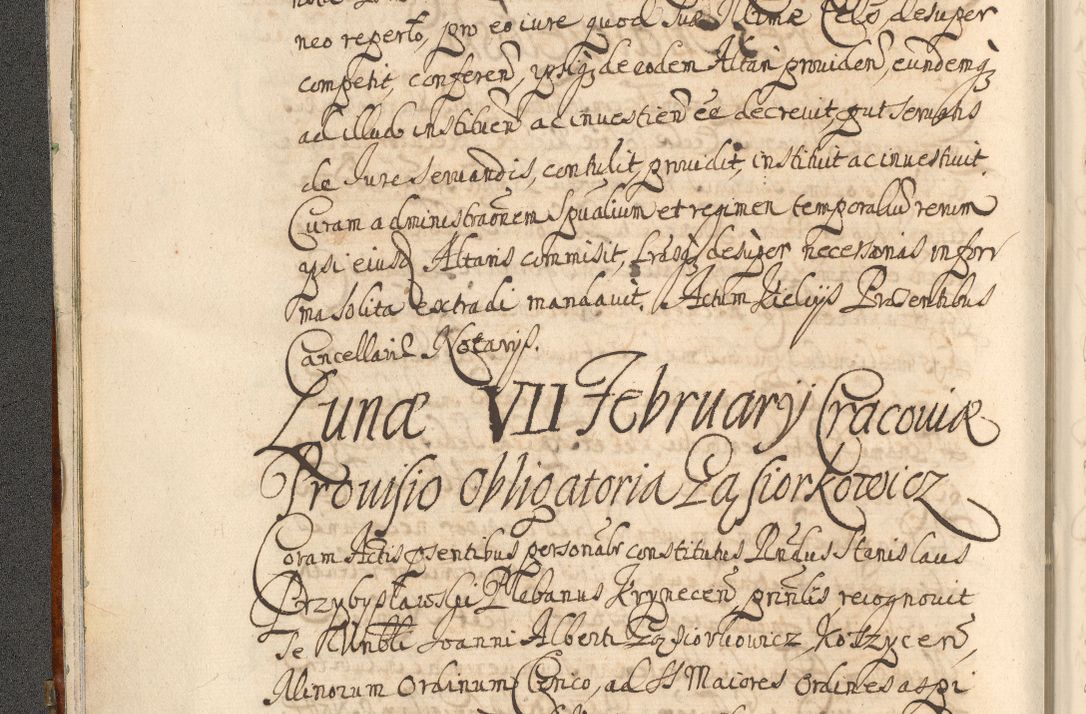 neo reperto, pro eo iure quod Suæ Illmæ Celo desuper
competit, conferen, ipsiq; de eodem Altari providen, eundemq;
ad illud instituen ac investien ee decrevit, put servatis
de Jure servandis, contulit, providit, instituit ac investivit
Curam administraonem Spualium et regimen temporaliu rerum
ipsi eiusd Altaris commisit, Lrasq; desuper necessarias in for
ma solita extradi mandavit. Actum Kielciis Præsentibus
Cancellariæ Notarijs.
Lunæ VII Februarij Cracoviæ
Provisio Obligatoria Gąsiorkowicz
Coram Actis psentibus personalr constitutus Rndus Stanislaus
Przybysławski Plebanus Krynecen, pnnlis, recognovit
Se Hnobli Joanni Alberti Gąsiorkowicz, Kotzycen,
Minorum Ordinum Clerico, ad SS Maiores Ordines aspi